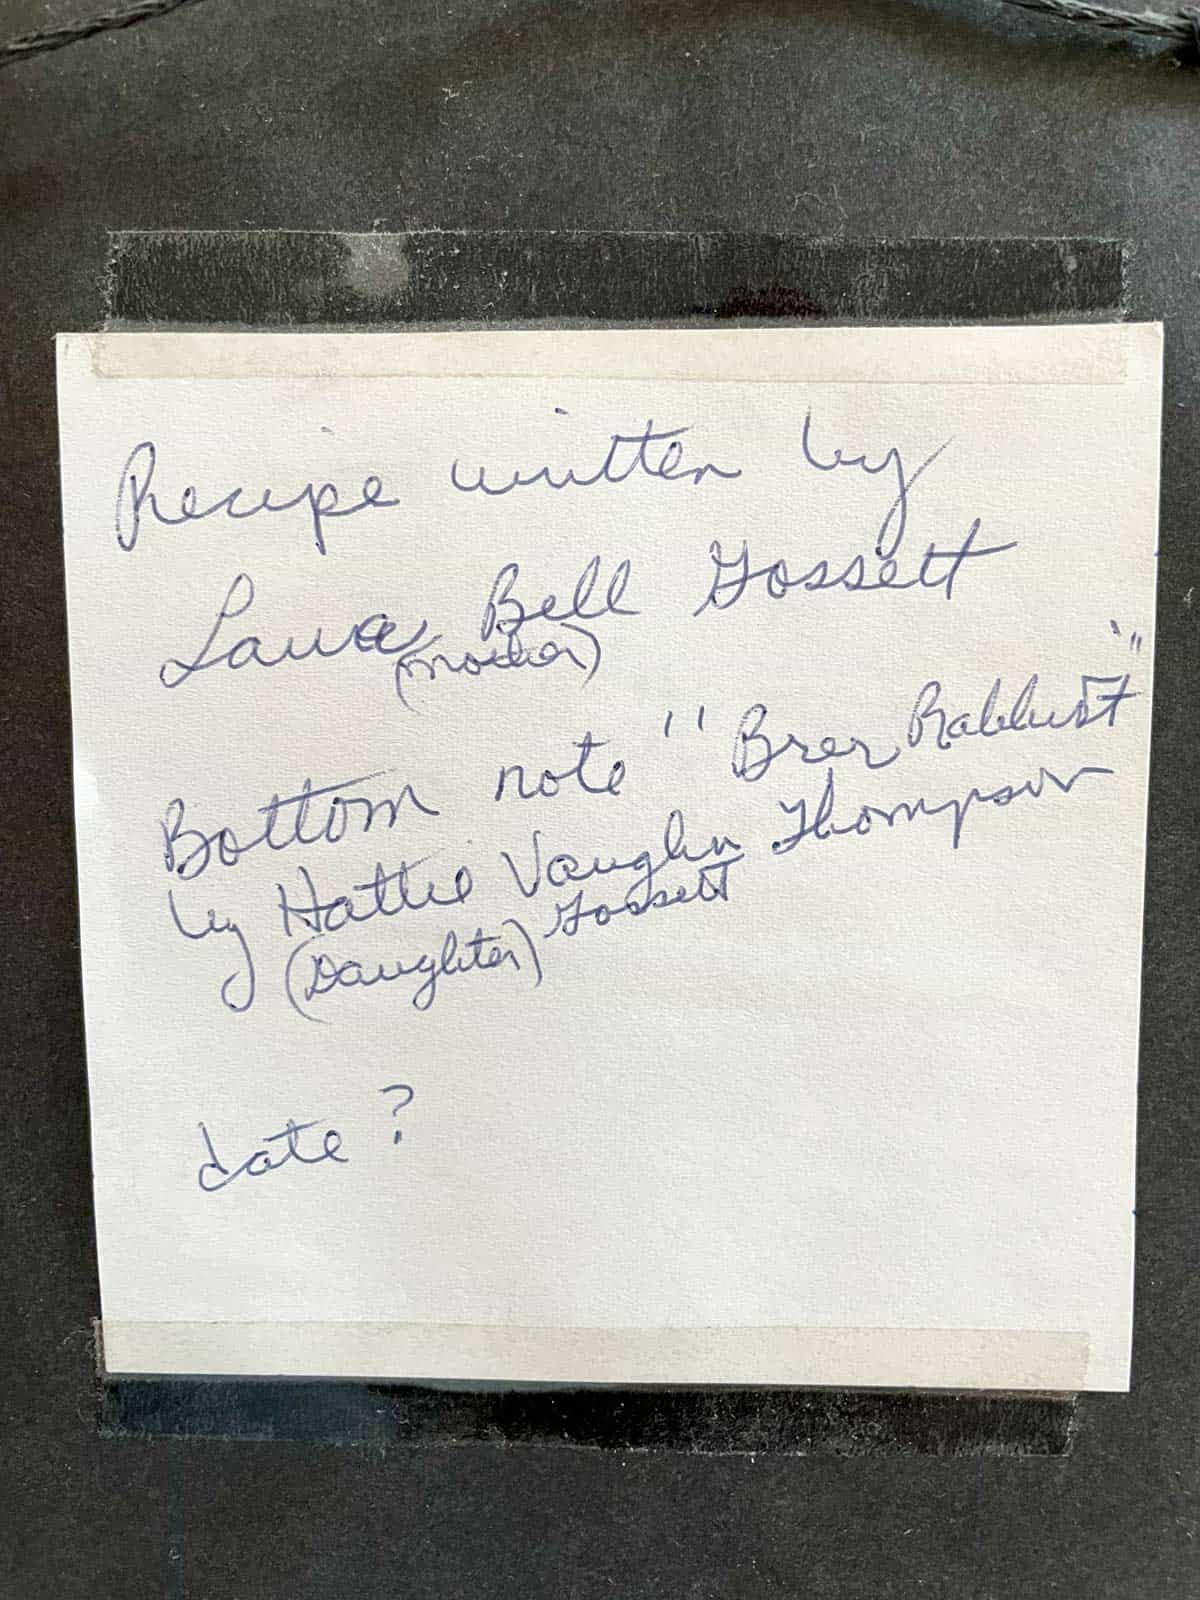 Recipe written by
Laura Bell Gossett
(mother)
Bottom note "Brer Rabbit"
by Hattie Vaughn Thompson
(Daughter) Gossett
date?